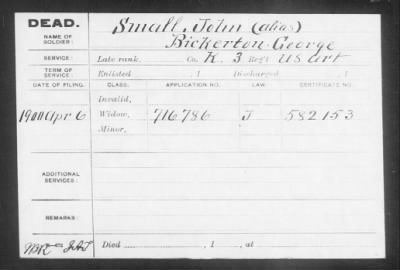 DEAD. Small, John (alias)
NAME OF SOLDIER: Bickerton George
SERVICE: Late rank, Co. K. 3 Reg't US Art
TERM OF SERVICE: Enlisted , 1 Discharged , 1
DATE OF FILING. CLASS. APPLICATION NO. LAW. CERTIFICATE NO.
Invalid,
1900 Apr 6 Widow, 716786 J 582153
Minor,
ADDITIONAL SERVICES:
REMARKS:
Died , 1 , at